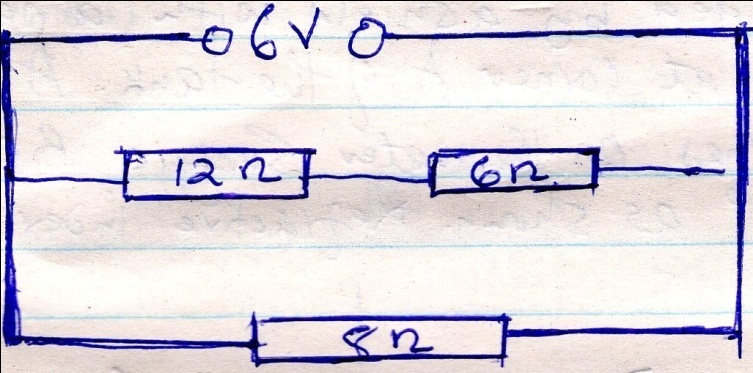 6V
12Ω 6Ω
8Ω